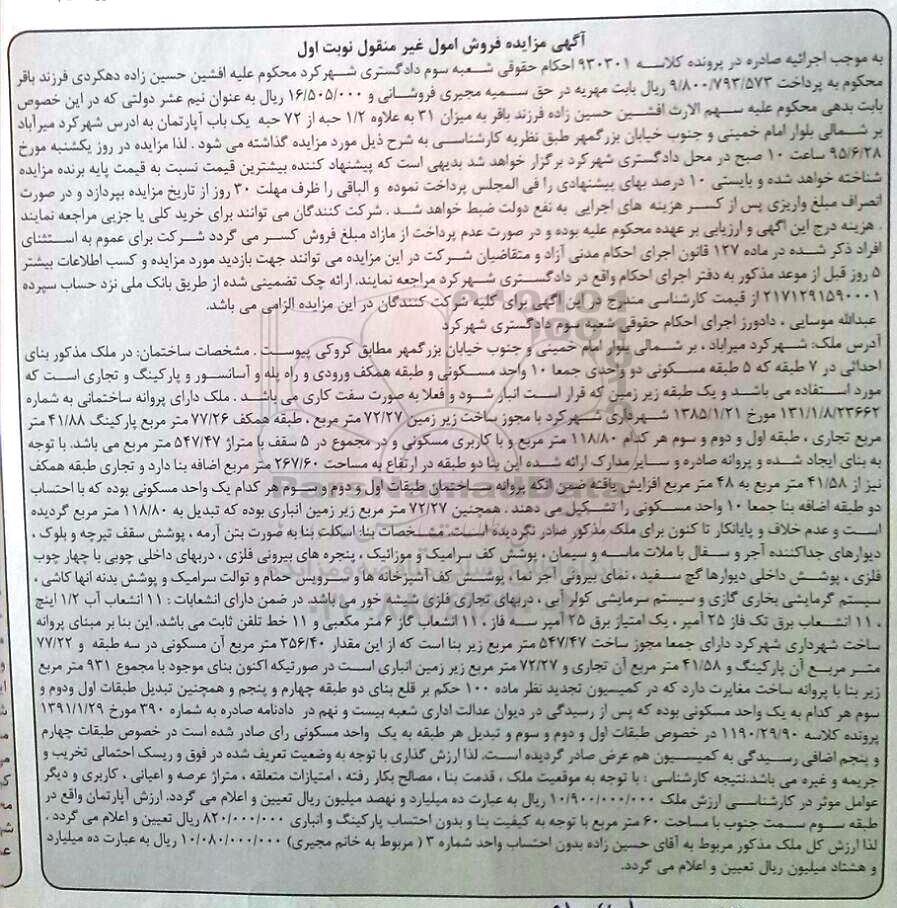 آگهی مزایده فروش امول غیر منقول نوبت اول
به موجب اجرائیه صادره در پرونده کلاسه ۹۳۰۳۰۱ احکام حقوقی شعبه سوم دادگستری شهرکرد محکوم علیه افشین حسین زاده دهکردی فرزند باقر
محکوم به پرداخت ۹/۸۰۰/۷۹۳/۵۷۳ ریال بابت مهریه در حق سمیه مجیری فروشانی و ۱۶/۵۰۵/۰۰۰ ریال به عنوان نیم عشر دولتی که در این خصوص
بابت بدهی محکوم علیه سهم الارث افشین حسین زاده فرزند باقر به میزان ۳۱ به علاوه ۱/۲ حبه از ۷۲ حبه یک باب آپارتمان به ادرس شهرکرد میرآباد
بر شمالی بلوار امام خمینی و جنوب خیابان بزرگمهر طبق نظریه کارشناسی به شرح ذیل مورد مزایده گذاشته می شود . لذا مزایده در روز یکشنبه مورخ
۹۵/۶/۲۸ ساعت ۱۰ صبح در محل دادگستری شهرکرد برگزار خواهد شد بدیهی است که پیشنهاد کننده بیشترین قیمت نسبت به قیمت پایه برنده مزایده
شناخته خواهد شده و بایستی ۱۰ درصد بهای پیشنهادی را فی المجلس پرداخت نموده و الباقی را ظرف مهلت ۳۰ روز از تاریخ مزایده بپردازد و در صورت
انصراف مبلغ واریزی پس از کسر هزینه های اجرایی به نفع دولت ضبط خواهد شد . شرکت کنندگان می توانند برای خرید کلی یا جزیی مراجعه نمایند
. هزینه درج این آگهی و ارزیابی بر عهده محکوم علیه بوده و در صورت عدم پرداخت از مازاد مبلغ فروش کسر می گردد شرکت برای عموم به استثنای
افراد ذکر شده در ماده ۱۲۷ قانون اجرای احکام مدنی آزاد و متقاضیان شرکت در این مزایده می توانند جهت بازدید مورد مزایده و کسب اطلاعات بیشتر
۵ روز قبل از موعد مذکور به دفتر اجرای احکام واقع در دادگستری شهرکرد مراجعه نمایند. ارائه چک تضمینی شده از طریق بانک ملی نزد حساب سپرده
۲۱۷۱۲۹۱۵۹۰۰۰۱ از قیمت کارشناسی مندرج در این آگهی برای کلیه شرکت کنندگان در این مزایده الزامی می باشد.
عبدالله موسایی ، دادورز اجرای احکام حقوقی شعبه سوم دادگستری شهرکرد
آدرس ملک: شهرکرد میراباد ، بر شمالی بلوار امام خمینی و جنوب خیابان بزرگمهر مطابق کروکی پیوست . مشخصات ساختمان: در ملک مذکور بنای
احداثی در ۷ طبقه که ۵ طبقه مسکونی دو واحدی جمعا ۱۰ واحد مسکونی و طبقه همکف ورودی و راه پله و آسانسور و پارکینگ و تجاری است که
مورد استفاده می باشد و یک طبقه زیر زمین که قرار است انبار شود و فعلا به صورت سفت کاری می باشد . ملک دارای پروانه ساختمانی به شماره
۱۳۱/۱/۸/۲۳۶۶۲ مورخ ۱۳۸۵/۱/۲۱ شهرداری شهرکرد با مجوز ساخت زیر زمین ۷۲/۲۷ متر مربع ، طبقه همکف ۷۷/۲۶ متر مربع پارکینگ ۴۱/۸۸ متر
مربع تجاری ، طبقه اول و دوم و سوم هر کدام ۱۱۸/۸۰ متر مربع و با کاربری مسکونی و در مجموع در ۵ سقف با متراژ ۵۴۷/۴۷ متر مربع می باشد. با توجه
به بنای ایجاد شده و پروانه صادره و سایر مدارک ارائه شده این بنا دو طبقه در ارتفاع به مساحت ۲۶۷/۶۰ متر مربع اضافه بنا دارد و تجاری طبقه همکف
نیز از ۴۱/۵۸ متر مربع به ۴۸ متر مربع افزایش یافته ضمن آنکه پروانه ساختمان طبقات اول و دوم و سوم هر کدام یک واحد مسکونی بوده که با احتساب
دو طبقه اضافه بنا جمعا ۱۰ واحد مسکونی را تشکیل می دهند . همچنین ۷۲/۲۷ متر مربع زیر زمین انباری بوده که تبدیل به ۱۱۸/۸۰ متر مربع گردیده
است و عدم خلاف و پایانکار تا کنون برای ملک مذکور صادر نگردیده است. مشخصات بنا: اسکلت بنا به صورت بتن آرمه ، پوشش سقف تیرچه و بلوک ،
دیوارهای جداکننده آجر و سفال با ملات ماسه و سیمان ، پوشش کف سرامیک و موزائیک ، پنجره های بیرونی فلزی ، دربهای داخلی چوبی با چهار چوب
فلزی ، پوشش داخلی دیوارها گچ سفید ، نمای بیرونی آجر نما ، پوشش کف آشپزخانه ها و سرویس حمام و توالت سرامیک و پوشش بدنه انها کاشی ،
سیستم گرمایشی بخاری گازی و سیستم سرمایشی کولر آبی ، دربهای تجاری فلزی شیشه خور می باشد. در ضمن دارای انشعابات : ۱۱ انشعاب آب ۱/۲ اینچ
، ۱۱ انشعاب برق تک فاز ۲۵ آمپر ، یک امتیاز برق ۲۵ آمپر سه فاز ، ۱۱ انشعاب گاز ۶ متر مکعبی و ۱۱ خط تلفن ثابت می باشد. این بنا بر مبنای پروانه
ساخت شهرداری شهرکرد دارای جمعا مجوز ساخت ۵۴۷/۴۷ متر مربع زیر بنا است که از این مقدار ۳۵۶/۴۰ متر مربع آن مسکونی در سه طبقه و ۷۷/۲۲
متر مربع آن پارکینگ و ۴۱/۵۸ متر مربع آن تجاری و ۷۲/۲۷ متر مربع زیر زمین انباری است در صورتیکه اکنون بنای موجود با مجموع ۹۳۱ متر مربع
زیر بنا با پروانه ساخت مغایرت دارد که در کمیسیون تجدید نظر ماده ۱۰۰ حکم بر قلع بنای دو طبقه چهارم و پنجم و همچنین تبدیل طبقات اول ودوم و
سوم هر کدام به یک واحد مسکونی بوده که پس از رسیدگی در دیوان عدالت اداری شعبه بیست و نهم در دادنامه صادره به شماره ۳۹۰ مورخ ۱۳۹۱/۱/۲۹
پرونده کلاسه ۱۱۹۰/۲۹/۹۰ در خصوص طبقات اول و دوم و سوم و تبدیل هر طبقه به یک واحد مسکونی رای صادر شده است در خصوص طبقات چهارم
و پنجم اضافی رسیدگی به کمیسیون هم عرض صادر گردیده است. لذا ارزش گذاری با توجه به وضعیت تعریف شده در فوق و ریسک احتمالی تخریب و
جریمه و غیره می باشد.نتیجه کارشناسی : با توجه به موقعیت ملک ، قدمت بنا ، مصالح بکار رفته ، امتیازات متعلقه ، متراژ عرصه و اعیانی ، کاربری و دیگر
عوامل موثر در کارشناسی ارزش ملک ۱۰/۹۰۰/۰۰۰/۰۰۰ ریال به عبارت ده میلیارد و نهصد میلیون ریال تعیین و اعلام می گردد. ارزش آپارتمان واقع در
طبقه سوم سمت جنوب با مساحت ۶۰ متر مربع با توجه به کیفیت بنا و بدون احتساب پارکینگ و انباری ۸۲۰/۰۰۰/۰۰۰ ریال تعیین و اعلام می گردد .
لذا ارزش کل ملک مذکور مربوط به آقای حسین زاده بدون احتساب واحد شماره ۳ ( مربوط به خانم مجیری) ۱۰/۰۸۰/۰۰۰/۰۰۰ ریال به عبارت ده میلیارد
و هشتاد میلیون ریال تعیین و اعلام می گردد.
ParsNamadData